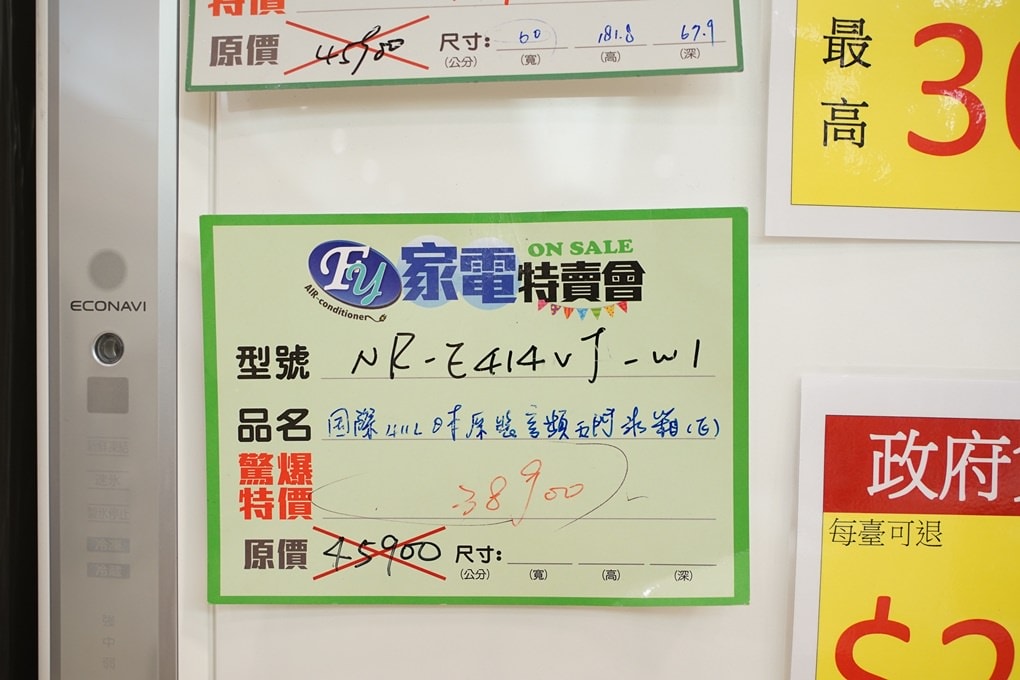 特價
原價 45900 尺寸: 60 181.8 67.9
(公分) (寬) (高) (深)
最高 30
ECONAVI
FY 家電特賣會 ON SALE
AIR-conditioner
型號 NR-E414VT-W1
品名 国際411L日本原裝变頻五門冰箱(左)
驚爆特價 38900
原價 45900 尺寸:
(公分) (寬) (高) (深)
政府
每臺可退
$2
新鮮凍結
速氷
製氷停止
冷凍
冷藏
強
中
弱